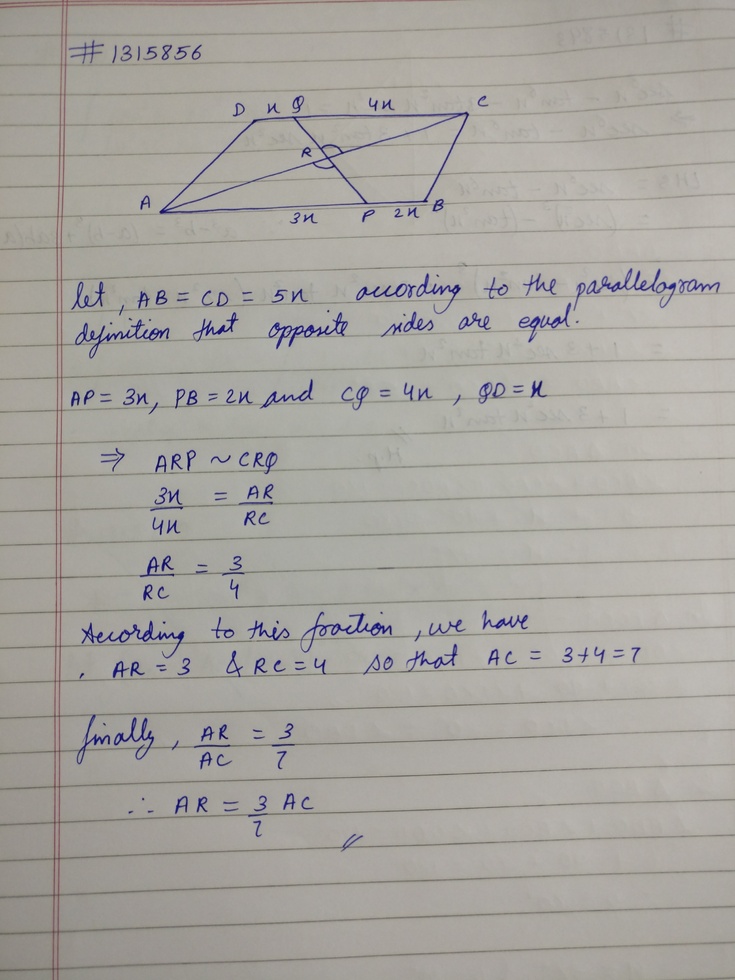 # 1315856
D x Q 4x C
R
A 3x P 2x B
let, AB = CD = 5x according to the parallelogram
definition that opposite sides are equal.
AP = 3x, PB = 2x and CQ = 4x, QD = x
⇒ ARP ~ CRQ
3x/4x = AR/RC
AR/RC = 3/4
According to this fraction, we have
. AR = 3 & RC = 4 so that AC = 3+4 = 7
finally, AR/AC = 3/7
∴ AR = 3/7 AC